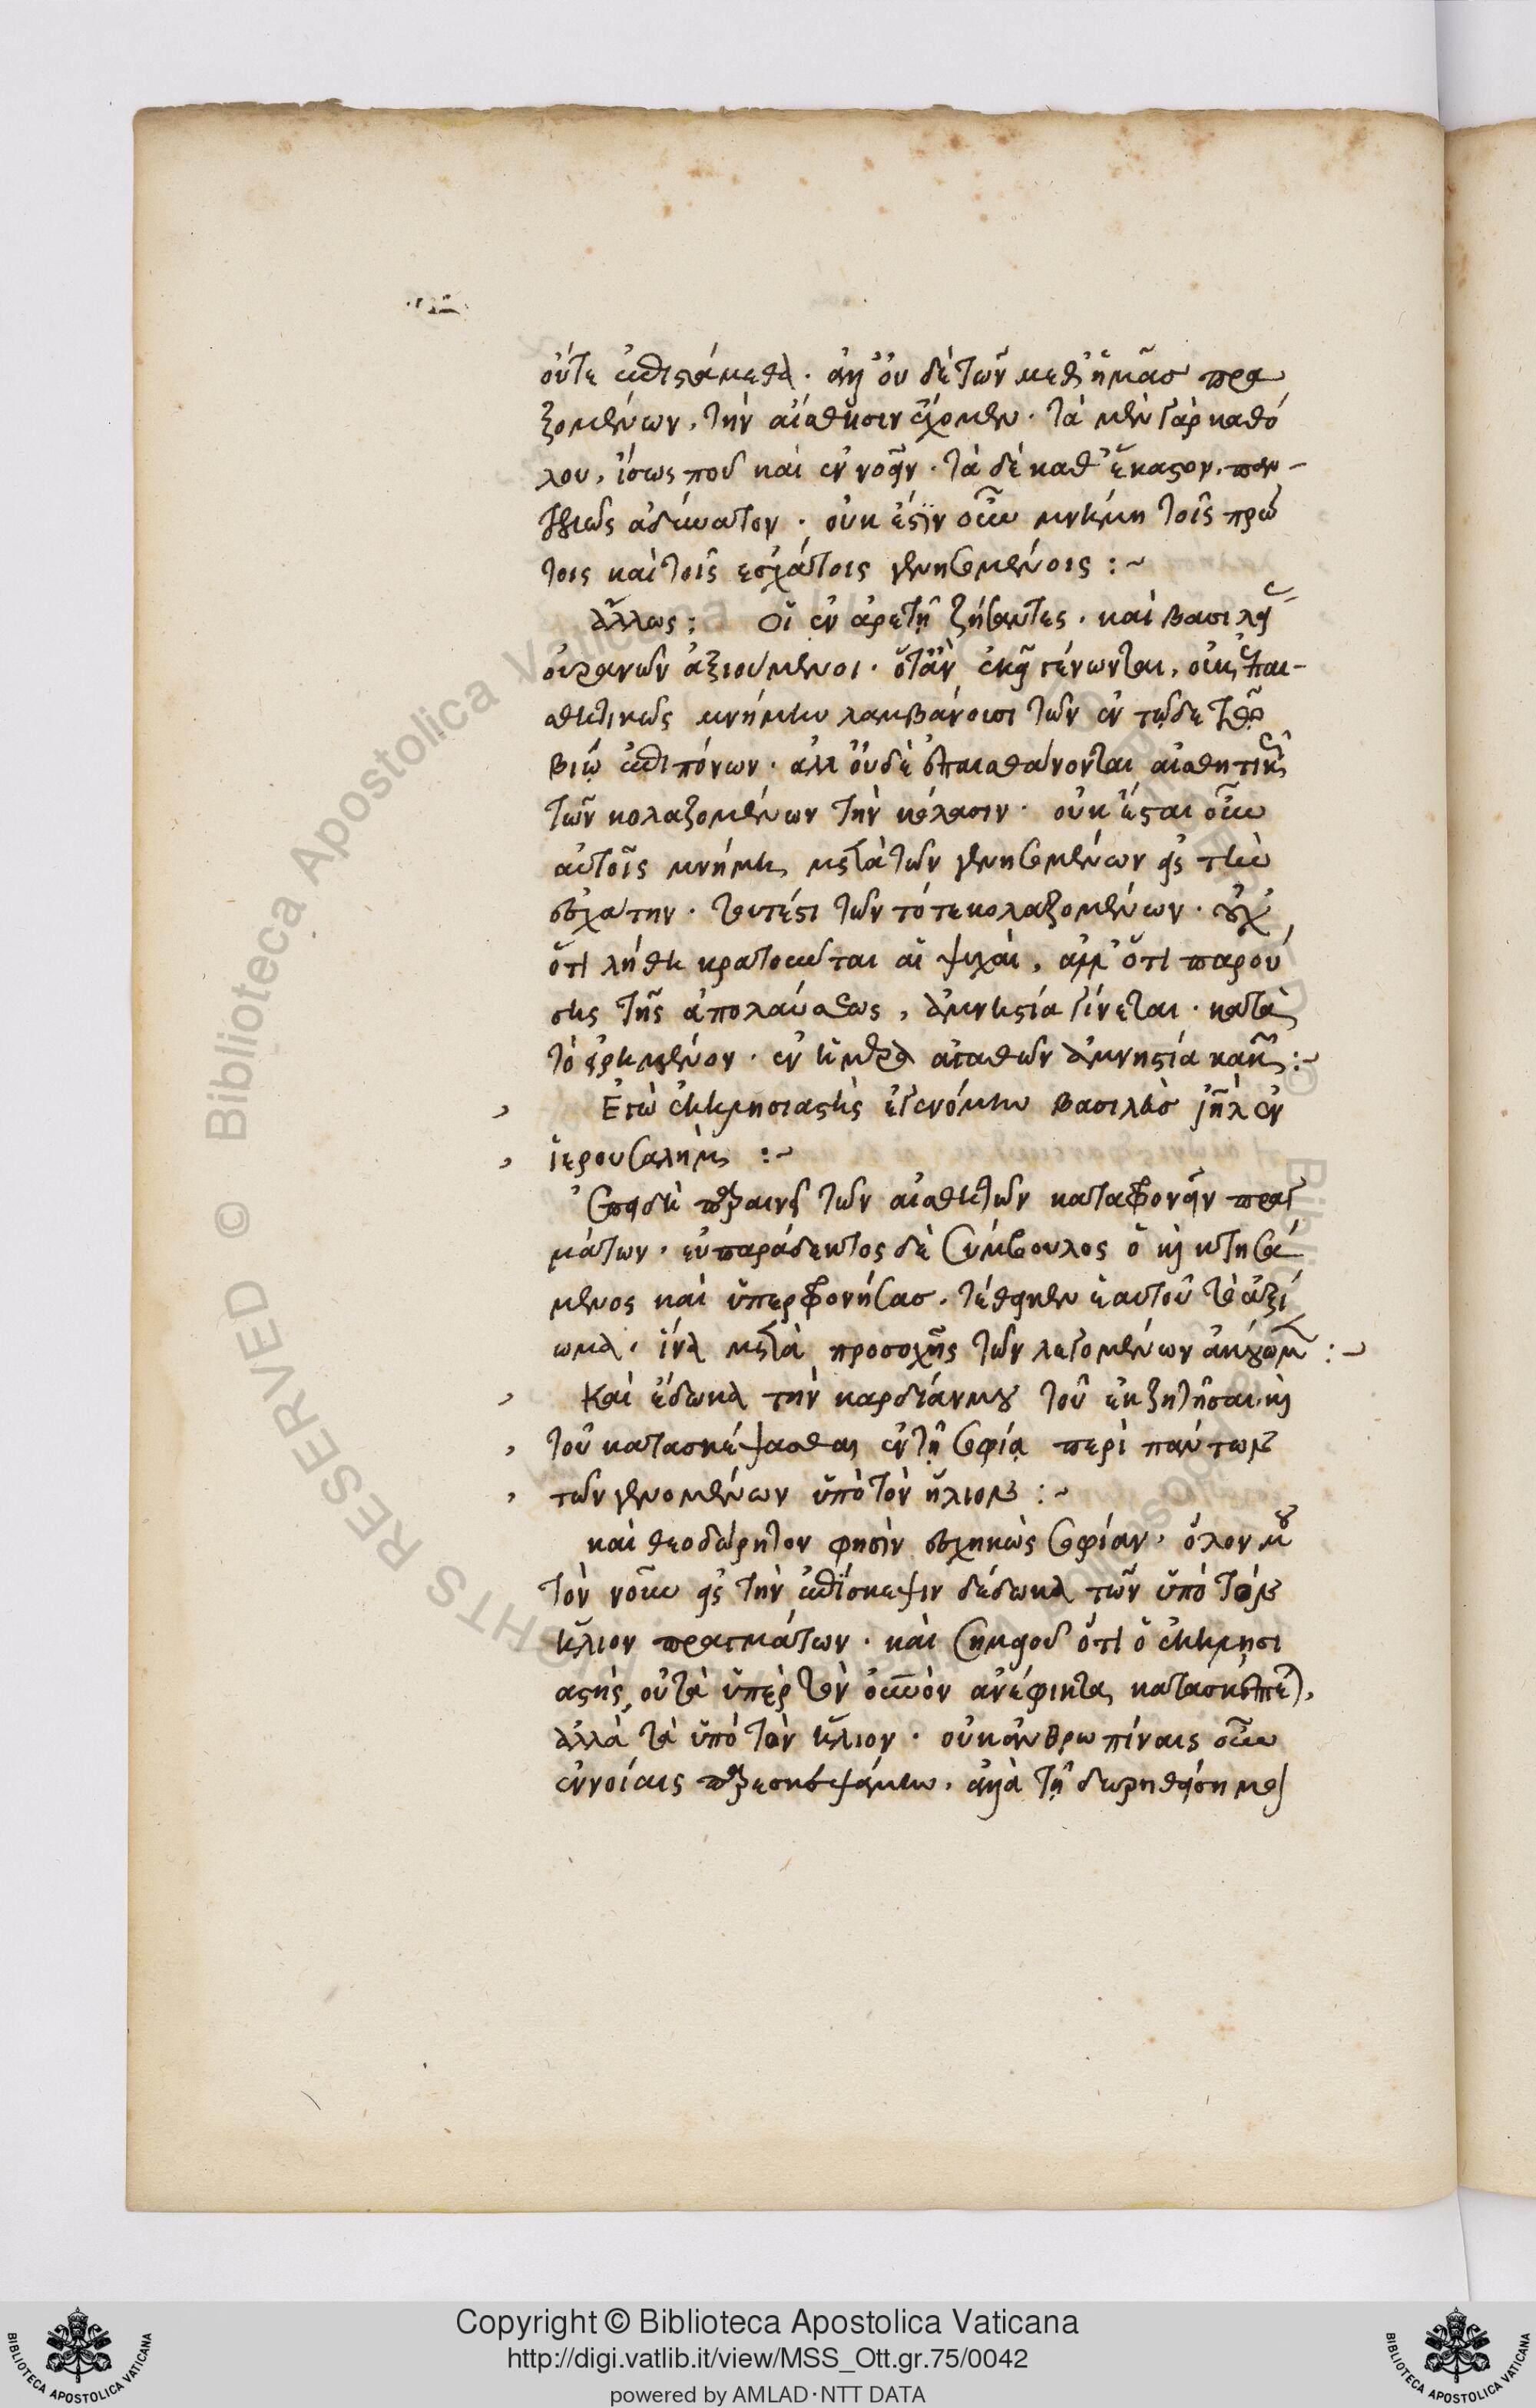 οὔτε ἐπιστάμεθα. ἀλλ' οὐδὲ τῶν μεθ' ἡμᾶς πρα
ξομένων, τὴν αἴσθησιν ἔχομεν. τὰ μὲν γὰρ καθό
λου, ἴσως που καὶ ἐννοεῖν. τὰ δὲ καθ' ἕκαστον, παν-
τελῶς ἀδύνατον. οὐκ ἔστιν οὖν μνήμη τοῖς πρώ
τοις καὶ τοῖς ἐσχάτοις γενησομένοις :~
ἄλλως: Οἱ ἐν ἀρετῇ ζήσαντες. καὶ βασιλεί
οὐρανῶν ἀξιούμενοι. ὅταν ἐκεῖ γένωνται, οὐκ ἐπαι-
σθητικῶς μνήμην λαμβάνουσι τῶν ἐν τῷδε τῷ
βίῳ ἐπιπόνων. ἀλλ' οὐδὲ ἐπαισθάνονται αἰσθητικῶς
τῶν κολαζομένων τὴν κόλασιν. οὐκ ἔσται οὖν
αὐτοῖς μνήμη μετὰ τῶν γενησομένων εἰς τὴν
ἐσχάτην. τουτέστι τῶν τότε κολαζομένων. οὐχ
ὅτι λήθη κρατοῦνται αἱ ψυχαί, ἀλλ' ὅτι παρού
σης τῆς ἀπολαύσεως, ἀμνηστία γίνεται. κατὰ
τὸ εἰρημένον. ἐν ἡμέρᾳ ἀγαθῶν ἀμνηστία κακῶν :~
Ἐγὼ ἐκκλησιαστὴς ἐγενόμην βασιλεὺς ἰῆλ ἐν
ἱερουσαλήμ :~
Ἐπειδὴ παραινεῖ τῶν αἰσθητῶν καταφρονεῖν πραγ
μάτων. εὐπαράδεκτος δὲ σύμβουλος ὁ καὶ κτησά
μενος καὶ ὑπερφρονήσας. τέθεικεν ἑαυτοῦ τὸ ἀξί
ωμα. ἵνα μετὰ προσοχῆς τῶν λεγομένων ἀκούωμεν :~
Καὶ ἔδωκα τὴν καρδίαν μου τοῦ ἐκζητῆσαι καὶ
τοῦ κατασκέψασθαι ἐν τῇ σοφίᾳ περὶ πάντων
τῶν γενομένων ὑπὸ τὸν ἥλιον :~
καὶ θεοδώρητον φησὶν ἐσχηκὼς σοφίαν. ὅλον μου
τὸν νοῦν εἰς τὴν ἐπίσκεψιν δέδωκα τῶν ὑπὸ τὸν
ἥλιον πραγμάτων. καὶ σημειοῦ ὅτι ὁ ἐκκλησι
αστής, οὐ τὰ ὑπὲρ τὸν οὐνὸν ἀνέφικτα κατασκέπτεται,
ἀλλὰ τὰ ὑπὸ τὸν ἥλιον. οὐκ ἀνθρωπίναις οὖν
ἐννοίαις παρεσκεψάμην. ἀλλὰ τῇ δωρηθείσῃ μοι